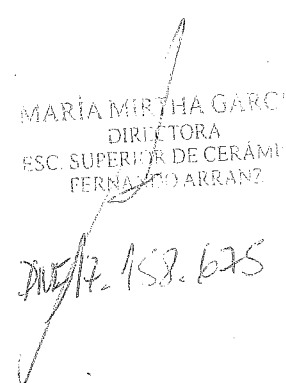 MARÍA MIRTHA GARC
DIRECTORA
ESC. SUPERIOR DE CERÁMI
FERNANDO ARRANZ
17.158.675